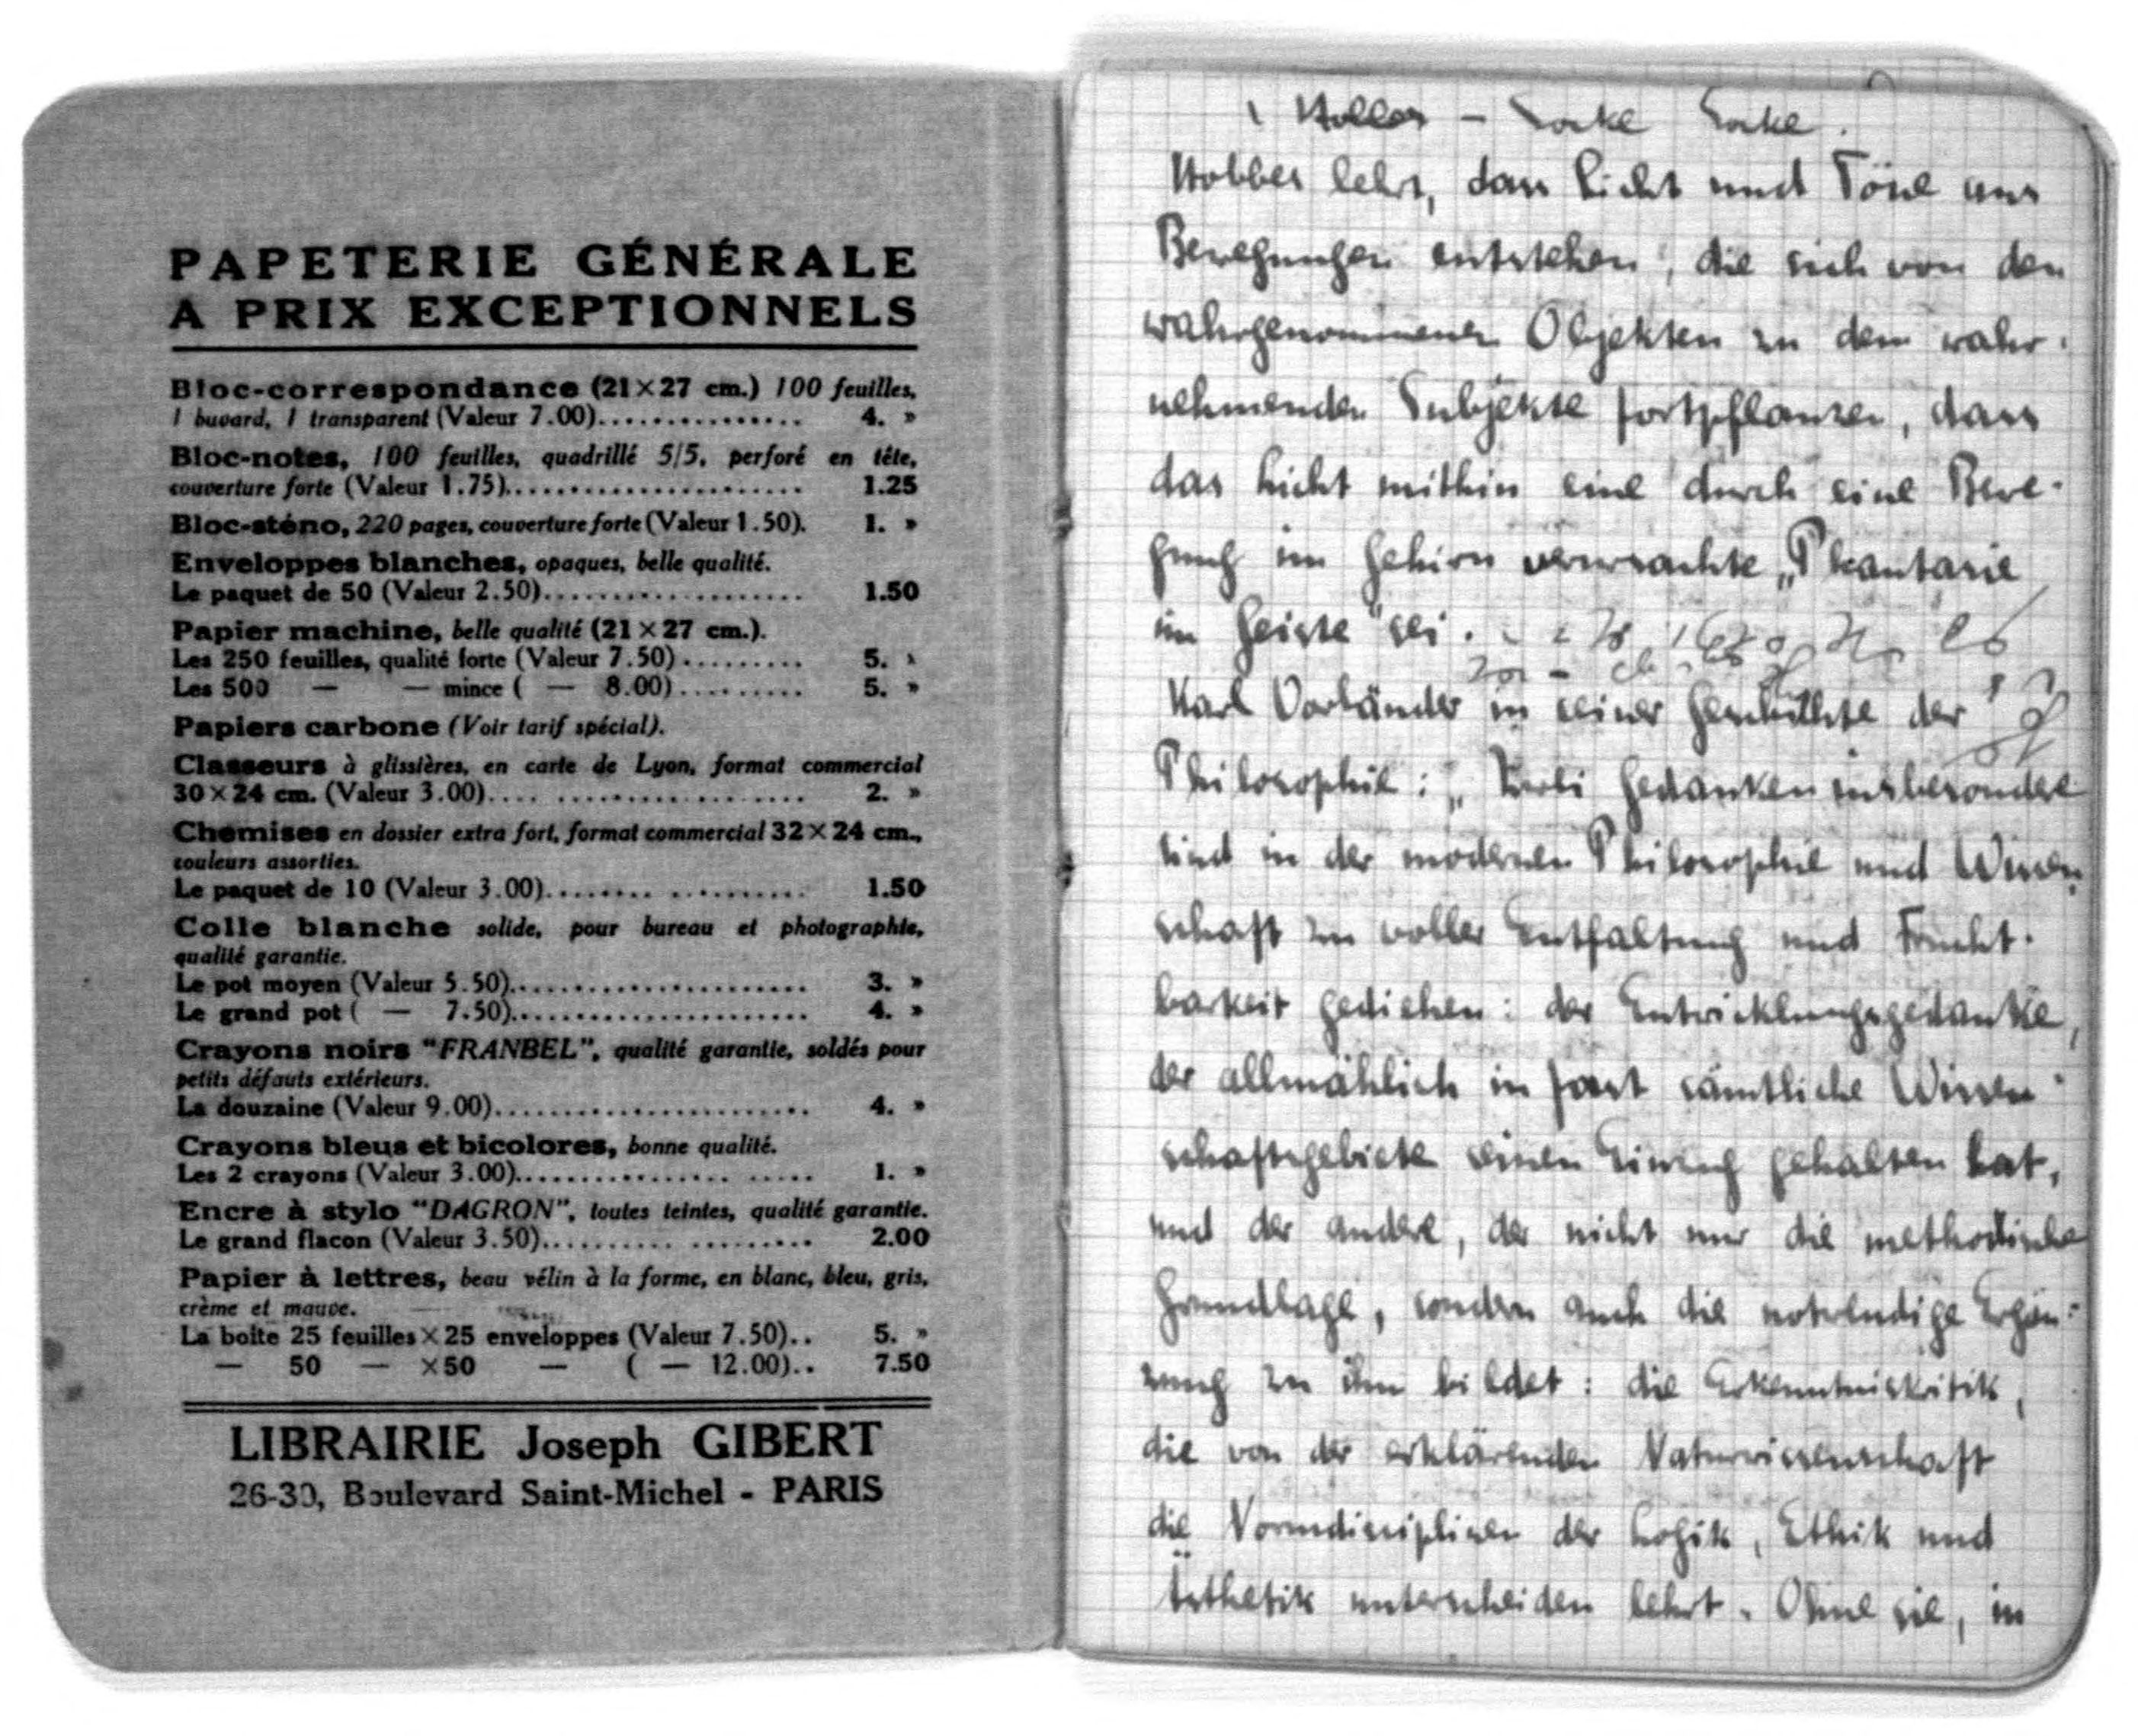 PAPETERIE GÉNÉRALE
A PRIX EXCEPTIONNELS
Bloc-correspondance (21×27 cm.) 100 feuilles,
1 buvard, 1 transparent (Valeur 7.00)............... 4. »
Bloc-notes, 100 feuilles, quadrillé 5/5, perforé en tête,
couverture forte (Valeur 1.75)........................ 1.25
Bloc-sténo, 220 pages, couverture forte (Valeur 1.50). 1. »
Enveloppes blanches, opaques, belle qualité.
Le paquet de 50 (Valeur 2.50)..................... 1.50
Papier machine, belle qualité (21×27 cm.).
Les 250 feuilles, qualité forte (Valeur 7.50).......... 5. »
Les 500 — — mince ( — 8.00).......... 5. »
Papiers carbone (Voir tarif spécial).
Classeurs à glissières, en carte de Lyon, format commercial
30×24 cm. (Valeur 3.00).... .................... 2. »
Chemises en dossier extra fort, format commercial 32×24 cm.,
couleurs assorties.
Le paquet de 10 (Valeur 3.00)........ ........... 1.50
Colle blanche solide, pour bureau et photographie,
qualité garantie.
Le pot moyen (Valeur 5.50)........................ 3. »
Le grand pot ( — 7.50)........................ 4. »
Crayons noirs "FRANBEL", qualité garantie, soldés pour
petits défauts extérieurs.
La douzaine (Valeur 9.00)......................... 4. »
Crayons bleus et bicolores, bonne qualité.
Les 2 crayons (Valeur 3.00)................ ..... 1. »
Encre à stylo "DAGRON", toutes teintes, qualité garantie.
Le grand flacon (Valeur 3.50).......... ......... 2.00
Papier à lettres, beau vélin à la forme, en blanc, bleu, gris,
crème et mauve.
La boîte 25 feuilles×25 enveloppes (Valeur 7.50).. 5. »
— 50 — ×50 — ( — 12.00).. 7.50
LIBRAIRIE Joseph GIBERT
26-30, Boulevard Saint-Michel - PARIS
Hobbes – Locke Locke.
Hobbes lehrt, dass Licht und Töne aus
Bewegungen entstehen, die sich von den
wahrgenommenen Objekten zu dem wahr-
nehmenden Subjekte fortpflanzen, dass
das Licht mithin eine durch eine Bewe-
gung im Gehirn verursachte „Phantasie
im Geiste" sei.
Karl Vorländer in seiner Geschichte der
Philosophie: „Zwei Gedanken insbesondere
sind in der modernen Philosophie und Wissen-
schaft zu voller Entfaltung und Frucht-
barkeit gediehen: der Entwicklungsgedanke,
der allmählich in fast sämtliche Wissen-
schaftsgebiete seinen Einzug gehalten hat,
und der andere, der nicht nur die methodische
Grundlage, sondern auch die notwendige Ergän-
zung zu ihm bildet: die Erkenntniskritik,
die von der erklärenden Naturwissenschaft
die Normdisciplinen der Logik, Ethik und
Ästhetik unterscheiden lehrt. Ohne sie, in